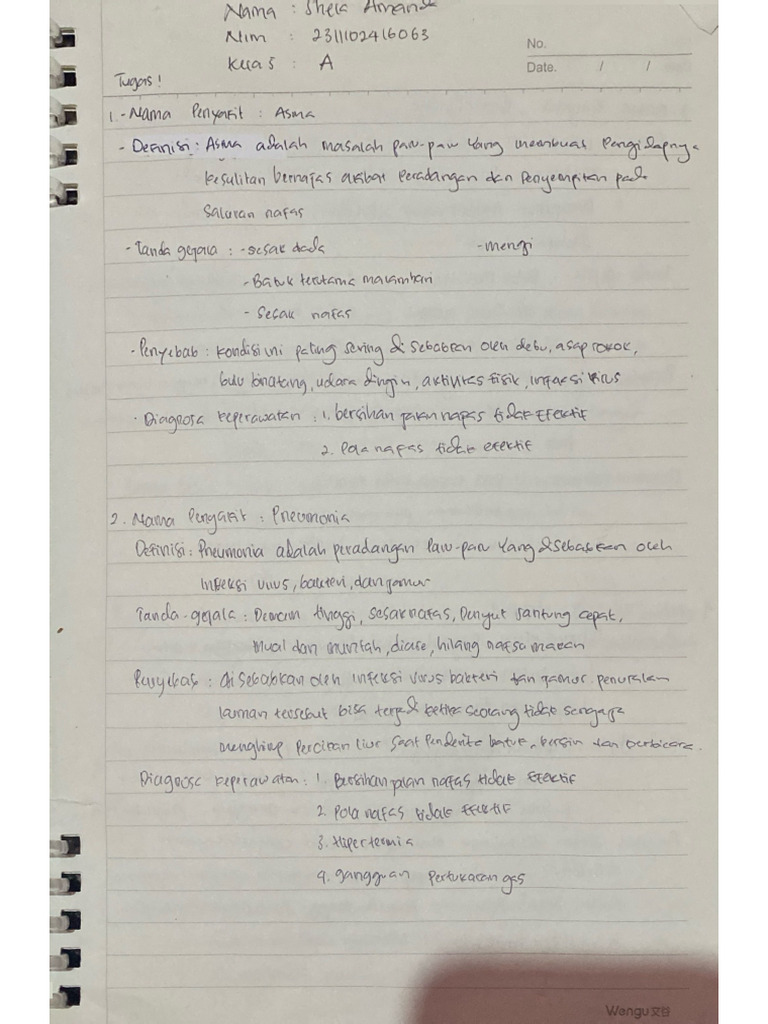 Nama : Shela Amanda
Nim : 2311102416063
Kelas : A
No.
Date. / /
Tugas!
1. - Nama Penyakit : Asma
- Definisi : Asma adalah masalah paru-paru yang membuat Pengidapnya
kesulitan bernafas akibat Peradangan dan Penyempitan pada
Saluran nafas
- Tanda gejala : - sesak dada - mengi
- Batuk terutama malam hari
- Sesak nafas
- Penyebab : kondisi ini paling sering di sebabkan oleh debu, asap rokok,
bulu binatang, udara dingin, aktivitas fisik, infeksi virus
- Diagnosa keperawatan : 1. bersihan jalan napas tidak Efektif
2. Pola nafas tidak efektif
2. Nama Penyakit : Pneumonia
Definisi : Pneumonia adalah peradangan Paru-paru Yang disebabkan oleh
Infeksi virus, bakteri, dan jamur
Tanda-gejala : Demam tinggi, sesak nafas, Denyut Jantung cepat,
Mual dan muntah, diare, hilang nafsu makan
Penyebab : di sebabkan oleh infeksi virus bakteri dan jamur. penularan
kuman tersebut bisa terjadi ketika seorang tidak sengaja
menghirup Percikan liur saat Penderita batuk, bersin dan berbicara.
Diagnosa keperawatan : 1. Bersihan jalan nafas tidak Efektif
2. Pola nafas tidak Efektif
3. Hipertermia
4. gangguan Pertukaran gas
Wengu文谷